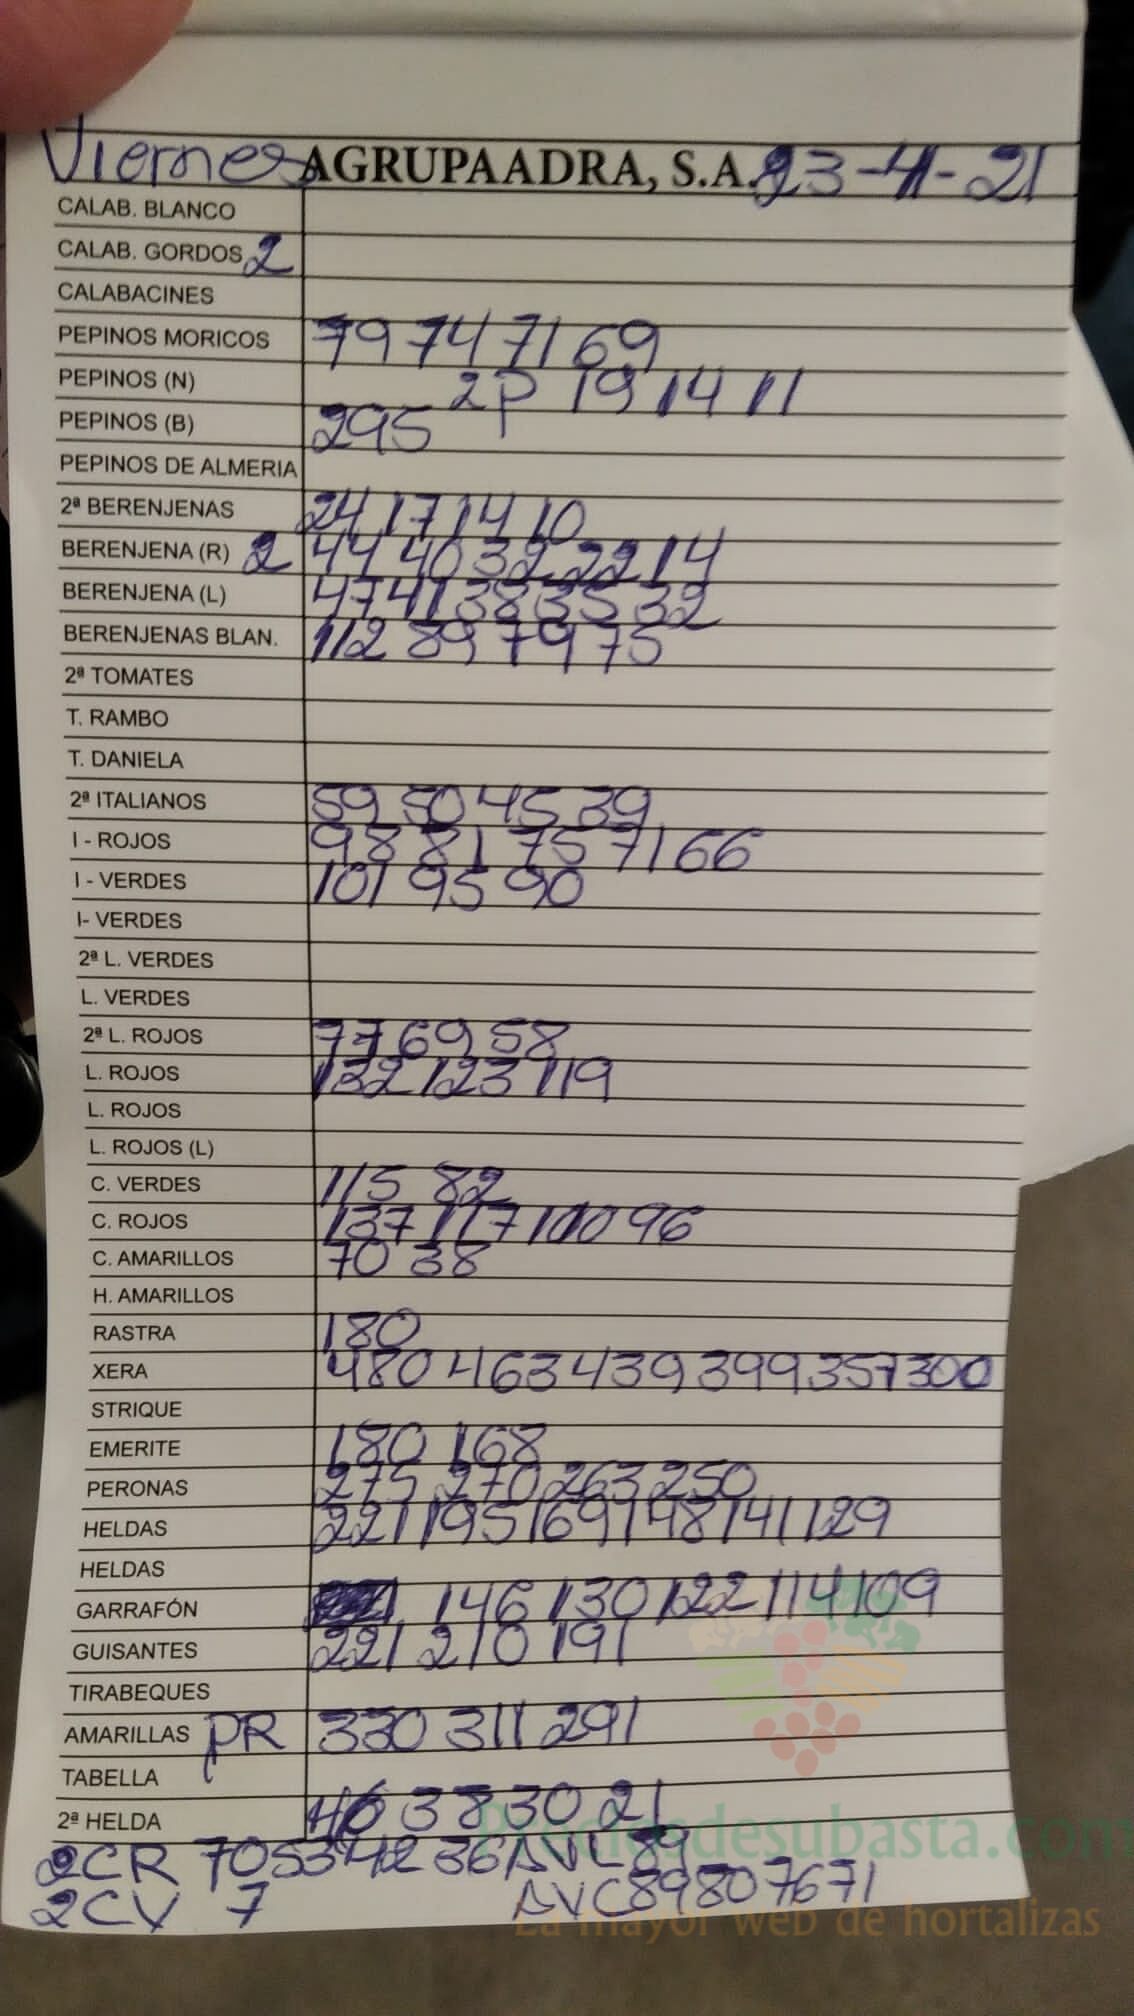 Viernes AGRUPAADRA, S.A. 23-4-21
CALAB. BLANCO
CALAB. GORDOS 2
CALABACINES
PEPINOS MORICOS 79 74 71 69
PEPINOS (N) 2P 19 14 11
PEPINOS (B) 295
PEPINOS DE ALMERIA
2ª BERENJENAS 24 17 14 10
BERENJENA (R) 2 44 40 32 22 14
BERENJENA (L) 47 41 38 35 32
BERENJENAS BLAN. 112 89 79 75
2ª TOMATES
T. RAMBO
T. DANIELA
2ª ITALIANOS 59 50 45 39
I - ROJOS 98 81 75 71 66
I - VERDES 101 95 90
I- VERDES
2ª L. VERDES
L. VERDES
2ª L. ROJOS 77 69 58
L. ROJOS 132 123 119
L. ROJOS
L. ROJOS (L)
C. VERDES 115 82
C. ROJOS 137 117 100 96
C. AMARILLOS 70 38
H. AMARILLOS
RASTRA 180
XERA 480 463 439 399 357 300
STRIQUE
EMERITE 180 168
PERONAS 275 270 263 250
HELDAS 221 195 169 148 141 129
HELDAS
GARRAFÓN 146 130 122 114 109
GUISANTES 221 210 191
TIRABEQUES
AMARILLAS PR 330 311 291
TABELLA
2ª HELDA 46 38 30 21
2CR 70 53 42 36 AVL 89
2CV 7 AVC 89 80 76 71
Preciosdesubasta.com
La mayor web de hortalizas